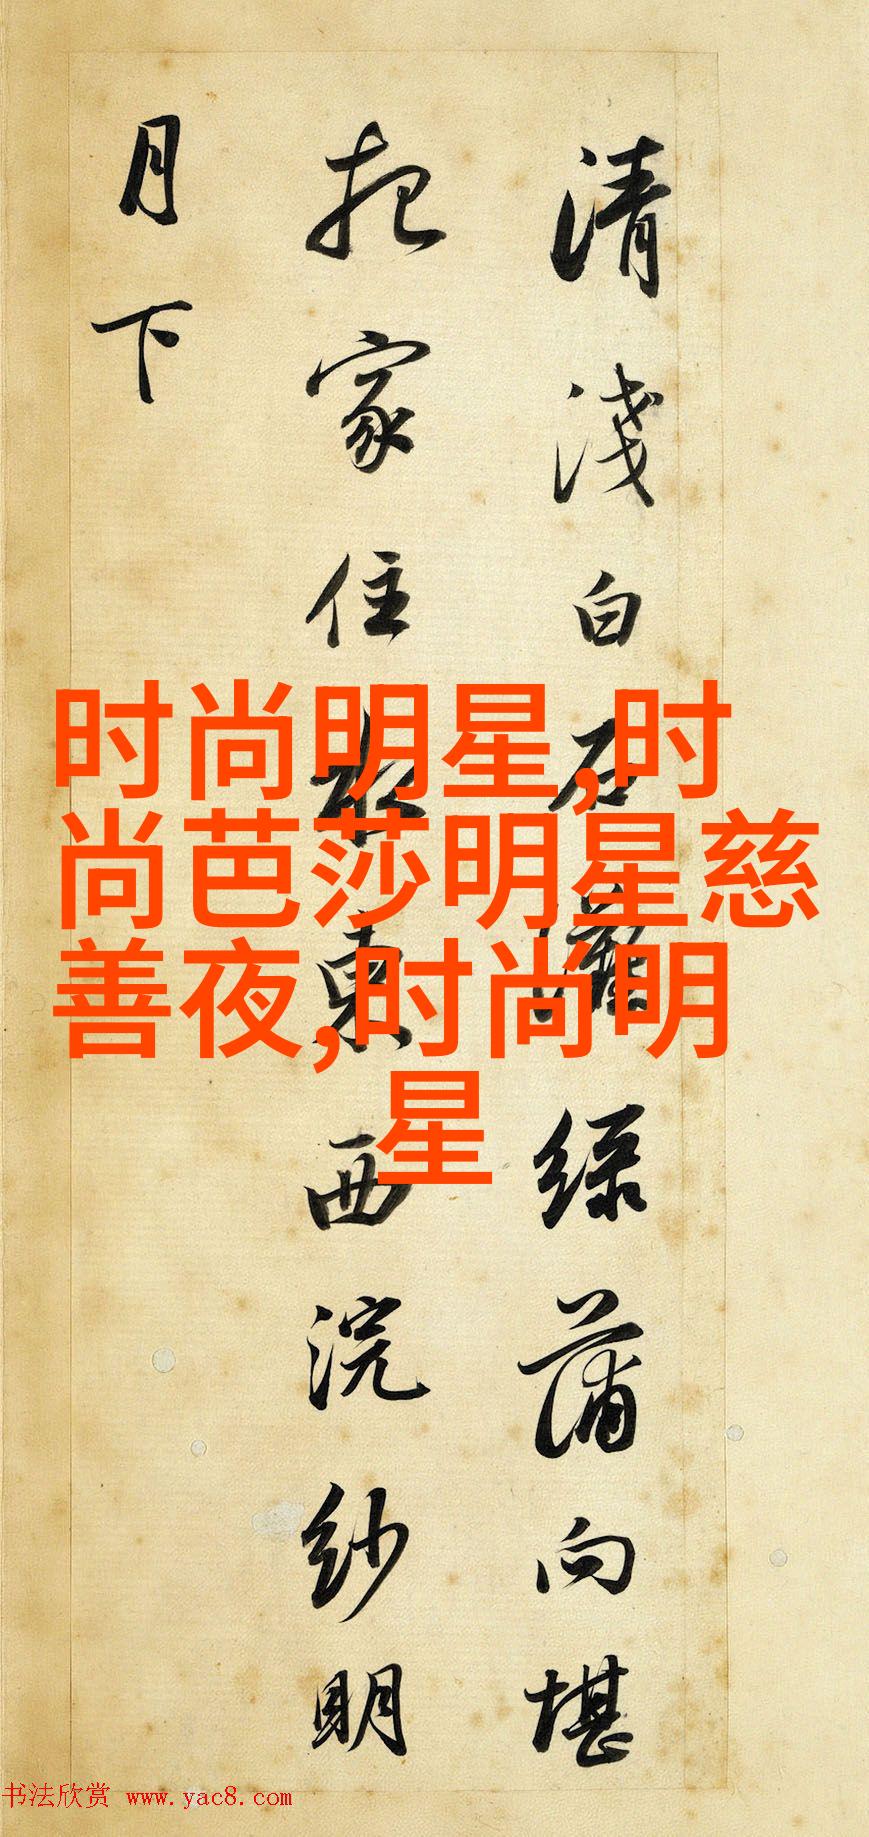 清淺白石灘綠蒲向堪
把家住水東西浣紗明
月下
时尚明星,时
尚芭莎明星慈
善夜,时尚明
星
书法欣赏 www.yac8.com